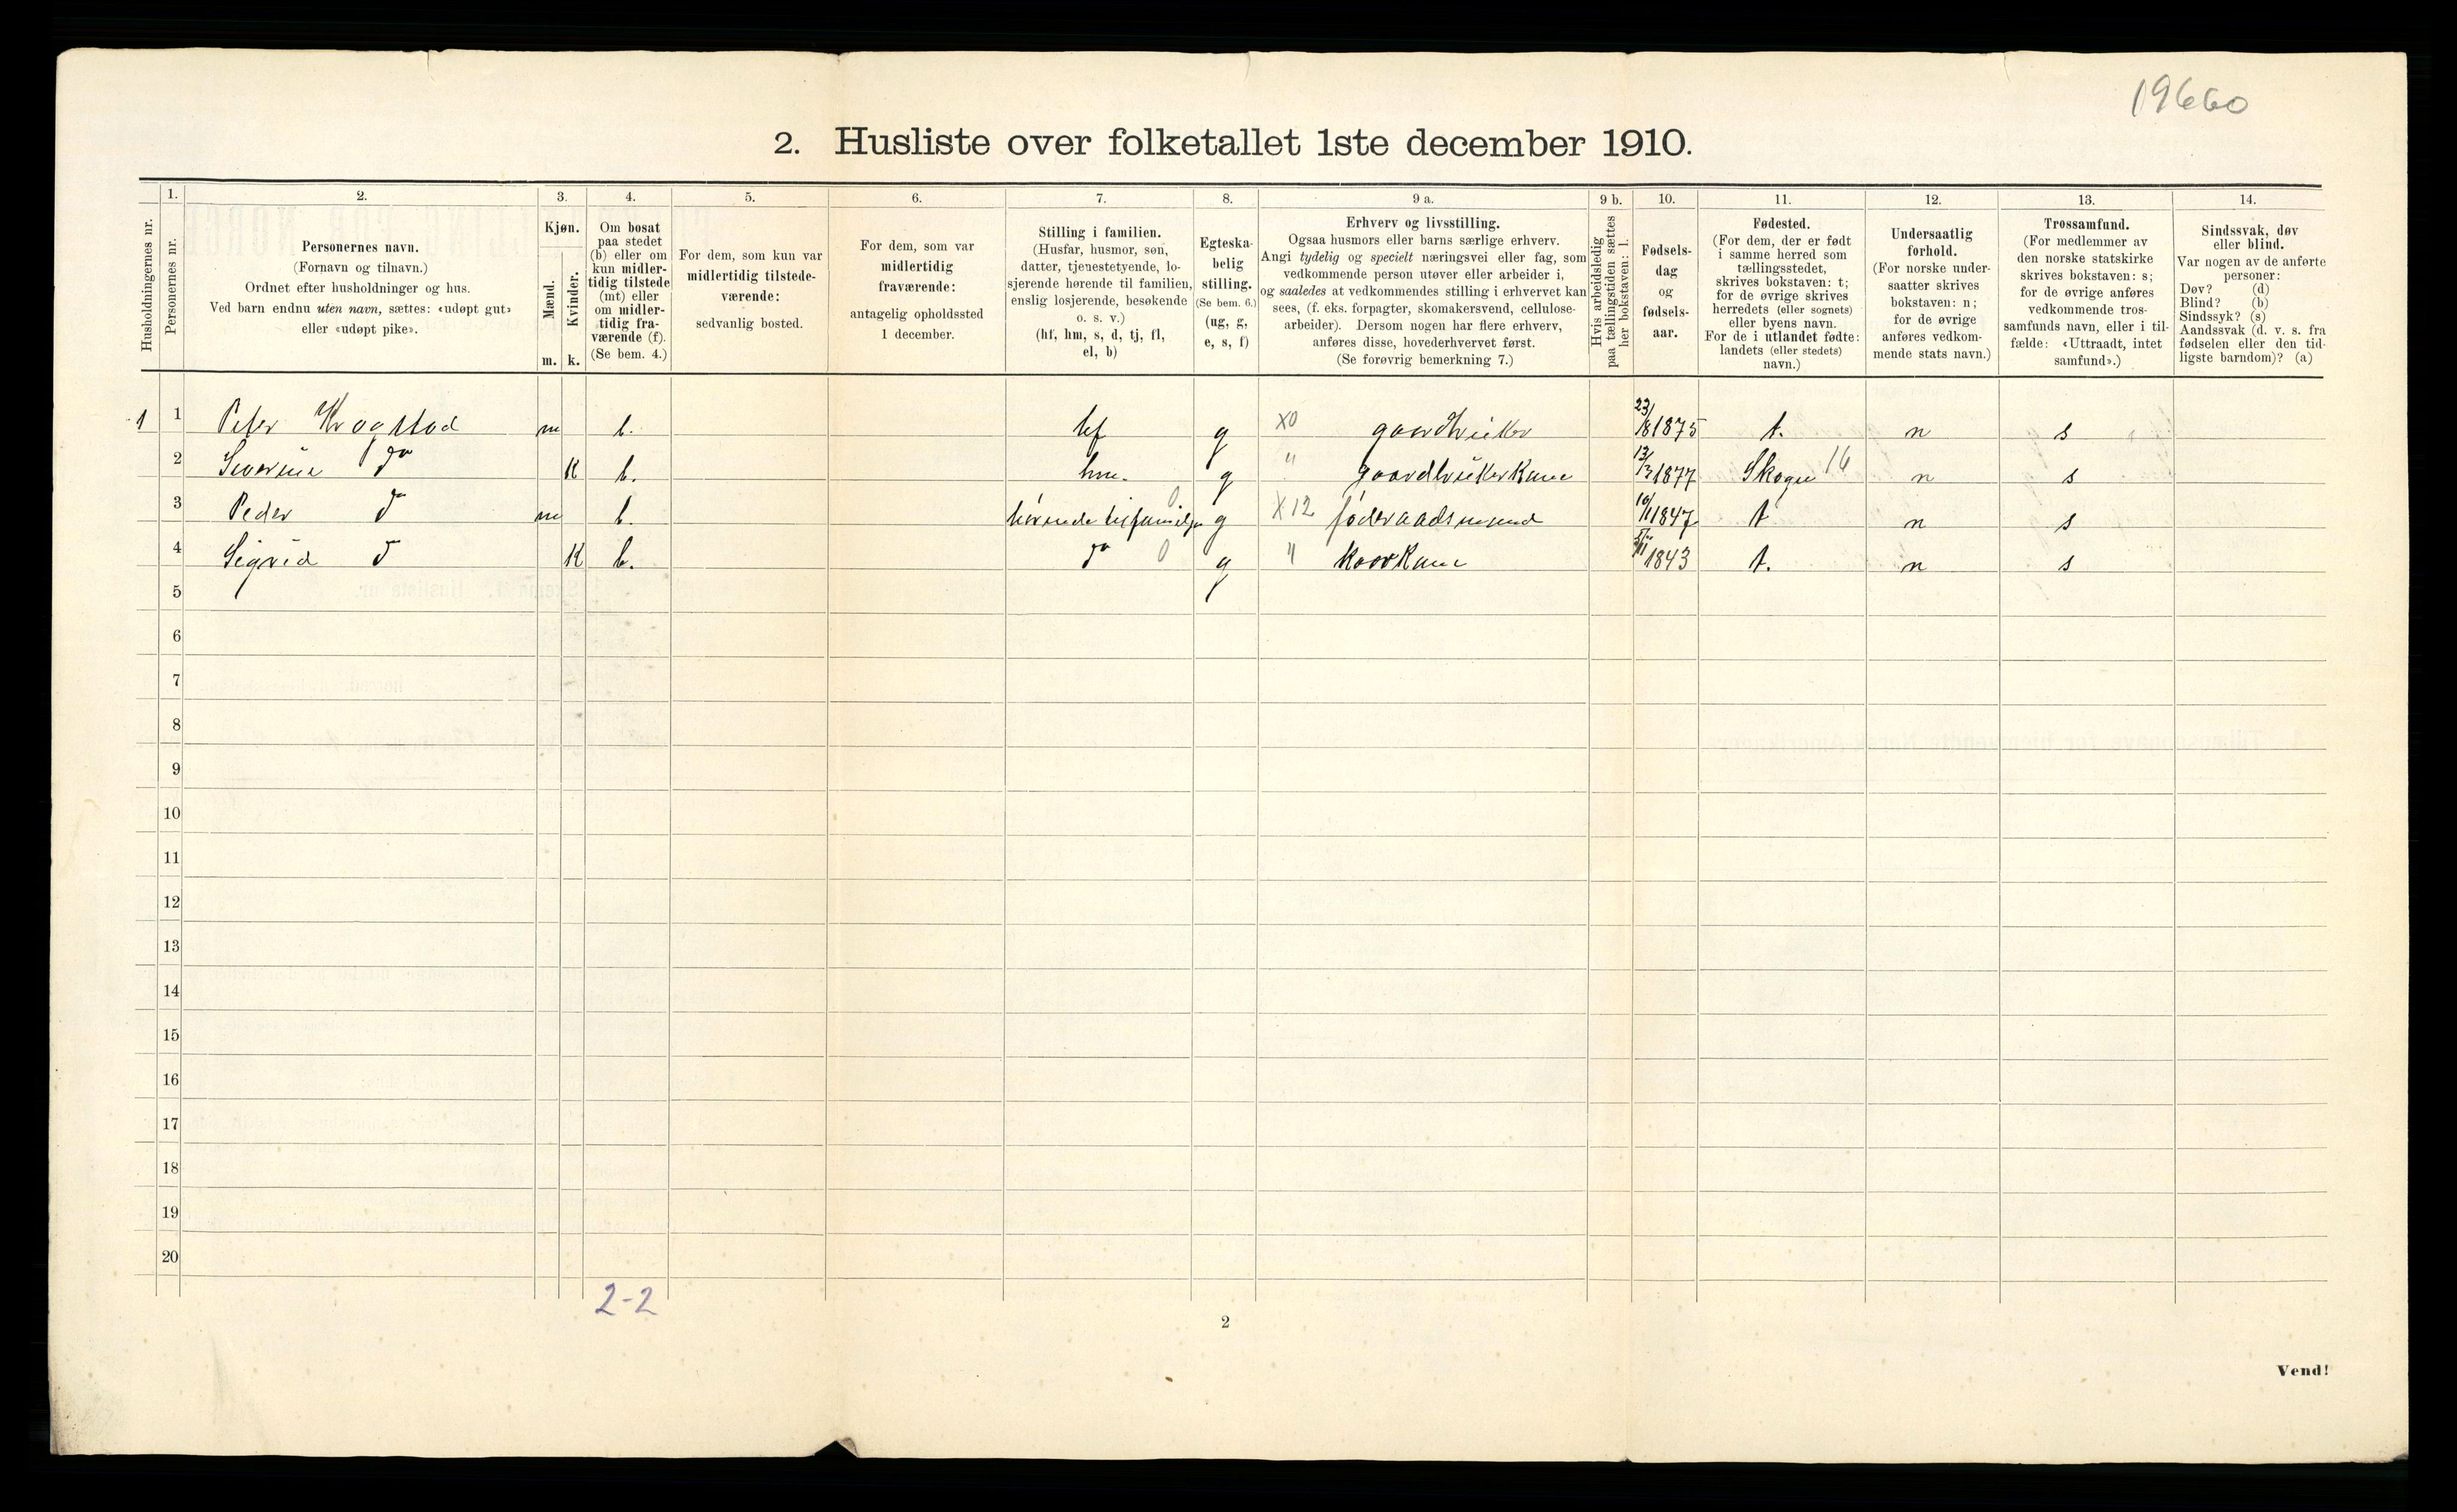 19660
2. Husliste over folketallet 1ste december 1910.
Husholdningernes nr.
1.
Personernes nr.
2.
Personernes navn.
(Fornavn og tilnavn.)
Ordnet efter husholdninger og hus.
Ved barn endnu uten navn, sættes: «udøpt gut»
eller «udøpt pike».
3.
Kjøn.
Mænd.
m.
Kvinder.
k.
4.
Om bosat
paa stedet
(b) eller om
kun midler-
tidig tilstede
(mt) eller
om midler-
tidig fra-
værende (f).
(Se bem. 4.)
5.
For dem, som kun var
midlertidig tilstede-
værende:
sedvanlig bosted.
6.
For dem, som var
midlertidig
fraværende:
antagelig opholdssted
1 december.
7.
Stilling i familien.
(Husfar, husmor, søn,
datter, tjenestetyende, lo-
sjerende hørende til familien,
enslig losjerende, besøkende
o. s. v.)
(hf, hm, s, d, tj, fl,
el, b)
8.
Egteska-
belig
stilling.
(Se bem. 6.)
(ug, g,
e, s, f)
9 a.
Erhverv og livsstilling.
Ogsaa husmors eller barns særlige erhverv.
Angi tydelig og specielt næringsvei eller fag, som
vedkommende person utøver eller arbeider i,
og saaledes at vedkommendes stilling i erhvervet kan
sees, (f. eks. forpagter, skomakersvend, cellulose-
arbeider). Dersom nogen har flere erhverv,
anføres disse, hovederhvervet først.
(Se forøvrig bemerkning 7.)
9 b.
Hvis arbeidsledig
paa tællingstiden sættes
her bokstaven: l.
10.
Fødsels-
dag
og
fødsels-
aar.
11.
Fødested.
(For dem, der er født
i samme herred som
tællingsstedet,
skrives bokstaven: t;
for de øvrige skrives
herredets (eller sognets)
eller byens navn.
For de i utlandet fødte:
landets (eller stedets)
navn.)
12.
Undersaatlig
forhold.
(For norske under-
saatter skrives
bokstaven: n;
for de øvrige
anføres vedkom-
mende stats navn.)
13.
Trossamfund.
(For medlemmer av
den norske statskirke
skrives bokstaven: s;
for de øvrige anføres
vedkommende tros-
samfunds navn, eller i til-
fælde: «Uttraadt, intet
samfund».)
14.
Sindssvak, døv
eller blind.
Var nogen av de anførte
personer:
Døv? (d)
Blind? (b)
Sindssyk? (s)
Aandssvak (d. v. s. fra
fødselen eller den tid-
ligste barndom)? (a)
1 1 Peter Krogstad m b. hf g X0 gaardbruker 23/8 1875 t. n s
2 Severine do K b. hm. g " gaardbrukerkone 13/3 1877 Skogn 16 n s
3 Peder do m b. hørende til familjen 0 g X12 føderaadsmand 10/11 1847 t n s
4 Sigrid do K b. do 0 g " kaarkone 1843 t. n s
5
6
7
8
9
10
11
12
13
14
15
16
17
18
19
20
2-2
2
Vend!